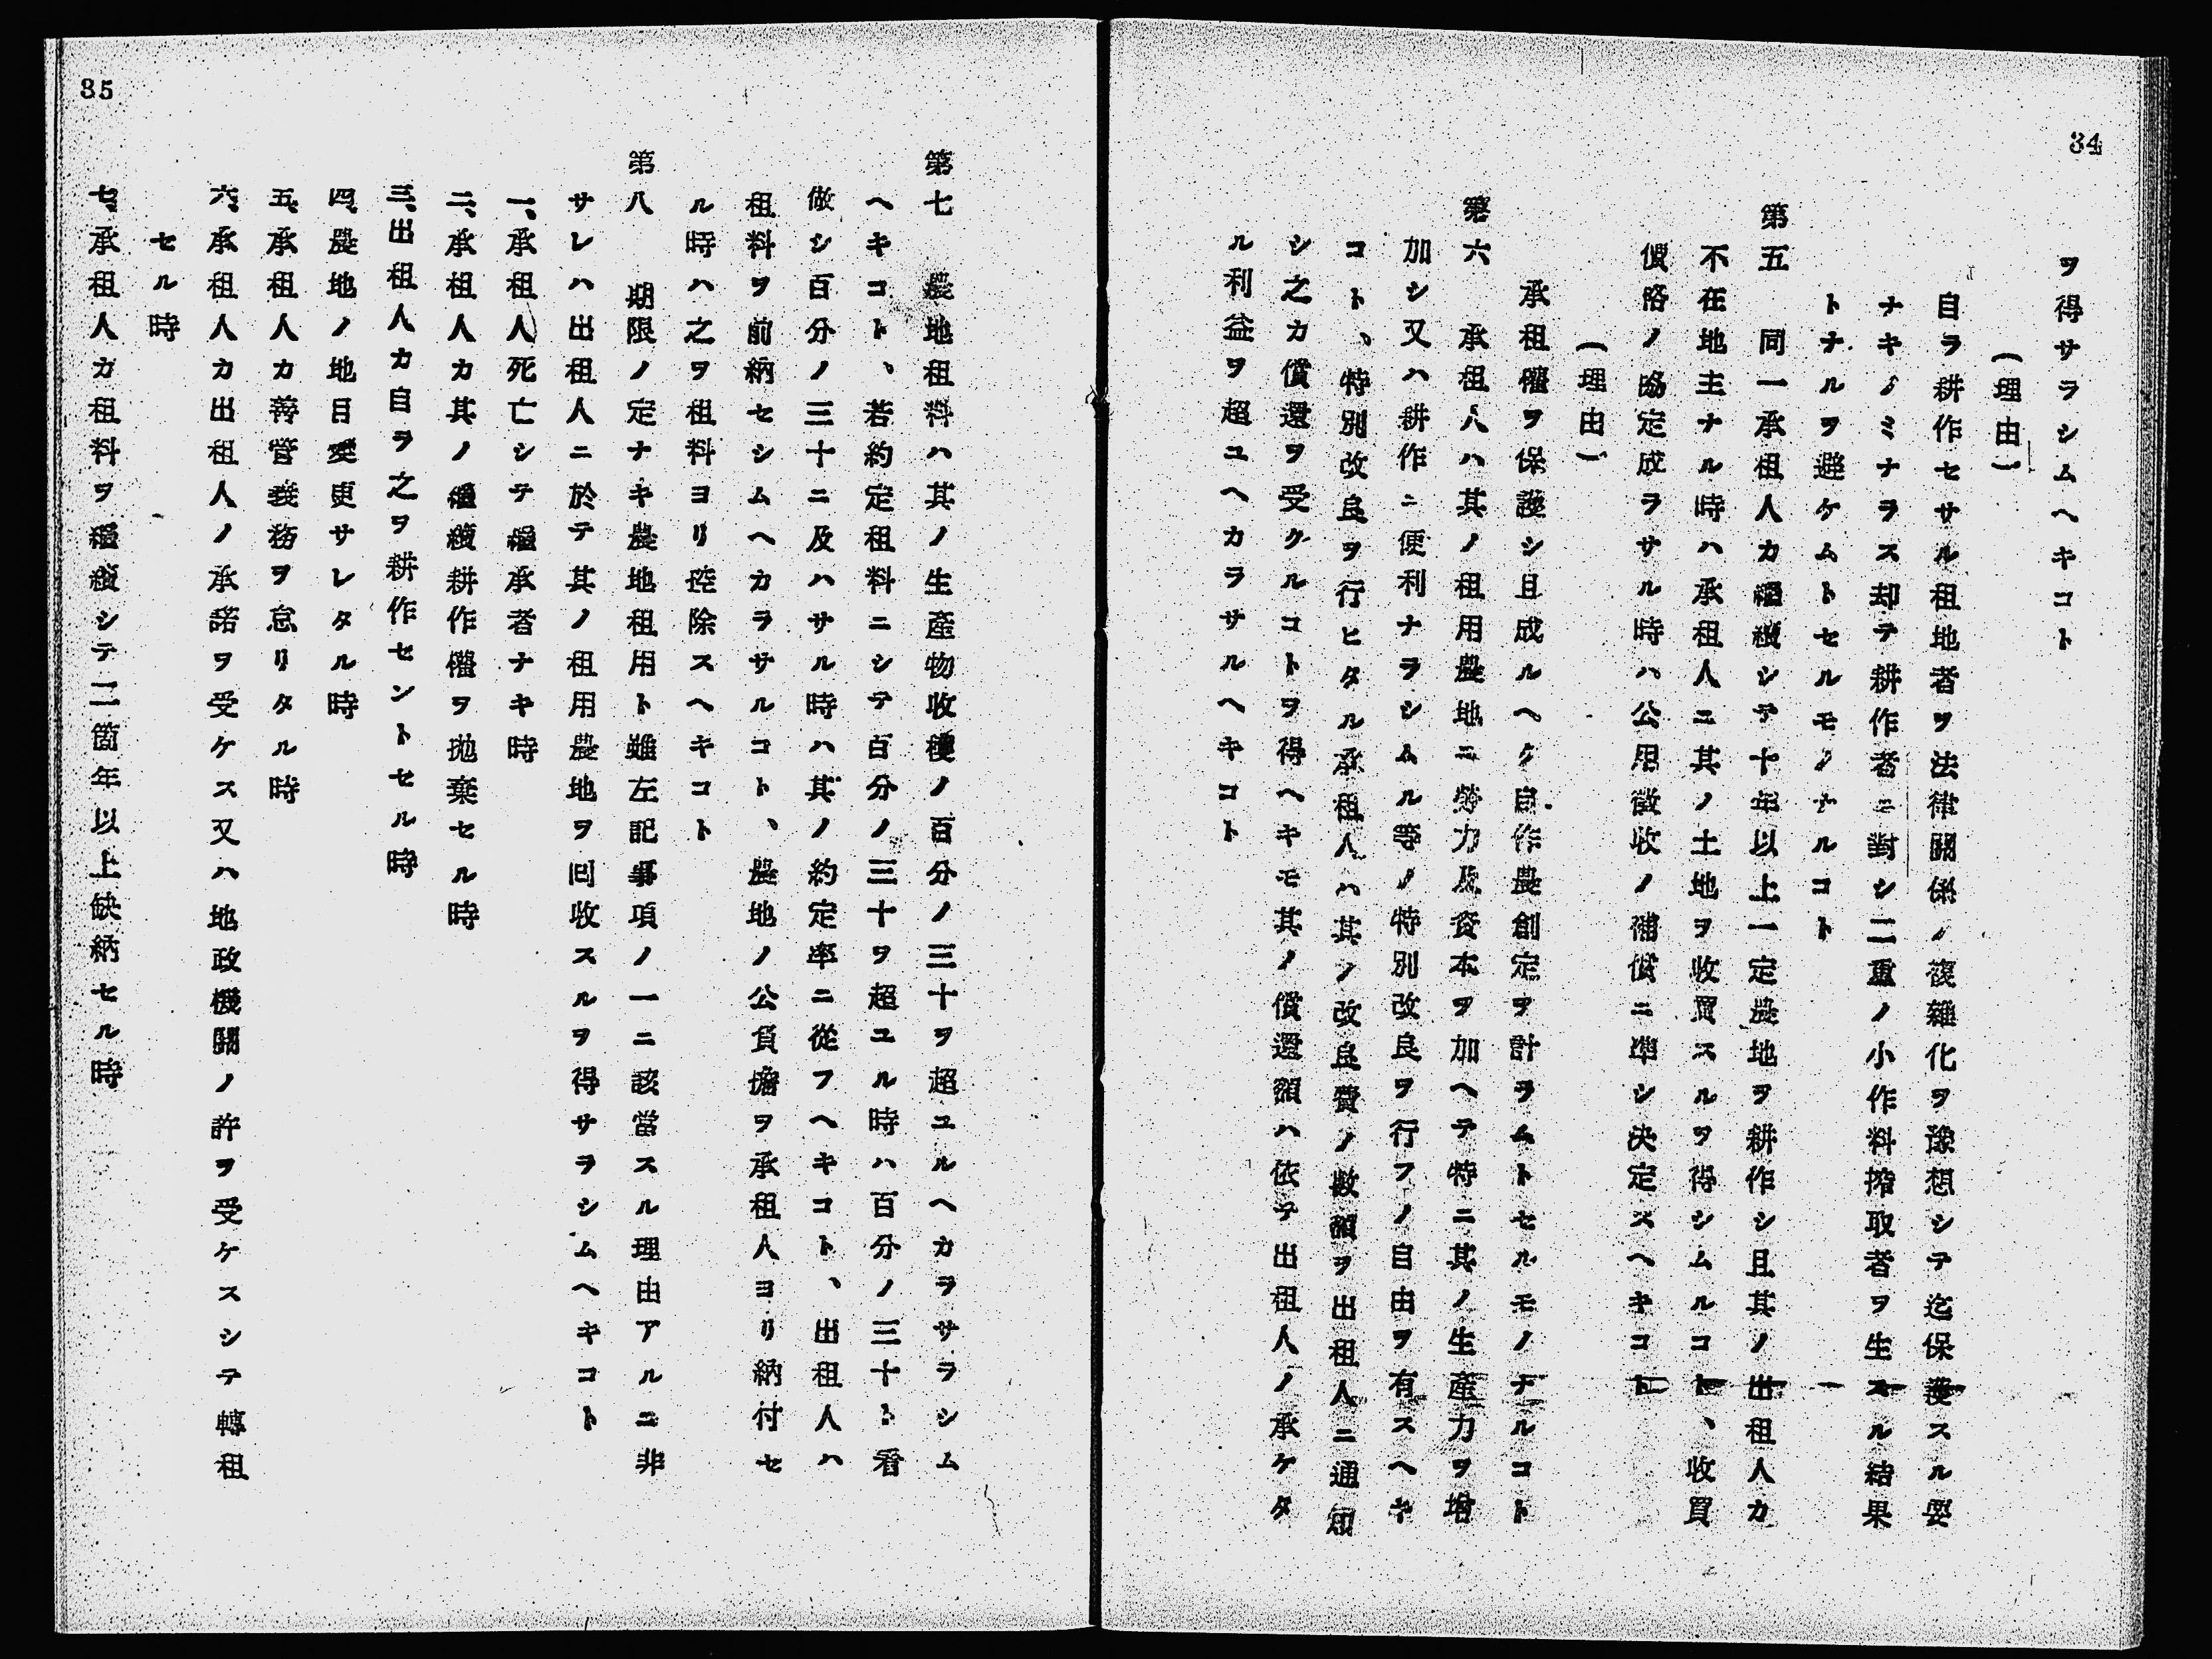 34
ヲ得サラシムヘキコト
(理由)
自ラ耕作セサル租地者ヲ法律關係ノ複雜化ヲ豫想シテ迄保護スル要
ナキノミナラス却テ耕作者ニ對シ二重ノ小作料搾取者ヲ生スル結果
トナルヲ避ケムトセルモノナルコト
第五　同一承租人カ繼續シテ十年以上一定農地ヲ耕作シ且其ノ出租人カ
不在地主ナル時ハ承租人ニ其ノ土地ヲ收買スルヲ得シムルコト、收買
價格ノ協定成ヲサル時ハ公用徵收ノ補償ニ準シ決定スヘキコト
(理由)
承租權ヲ保護シ且成ルヘク自作農創定ヲ計ヲムトセルモノナルコト
第六　承租人ハ其ノ租用農地ニ勞力及資本ヲ加ヘテ特ニ其ノ生產力ヲ增
加シ又ハ耕作ニ便利ナラシムル等ノ特別改良ヲ行フノ自由ヲ有スヘキ
コト、特別改良ヲ行ヒタル承租人ハ其ノ改良費ノ數額ヲ出租人ニ通知
シ之カ償還ヲ受クルコトヲ得ヘキモ其ノ償還額ハ依テ出租人ノ承ケタ
ル利益ヲ超ユヘカラサルヘキコト
第七　農地租料ハ其ノ生產物收穫ノ百分ノ三十ヲ超ユルヘカヲサラシム
ヘキコト、若約定租料ニシテ百分ノ三十ヲ超ユル時ハ百分ノ三十ト看
做シ百分ノ三十ニ及ハサル時ハ其ノ約定率ニ從フヘキコト、出租人ハ
租料ヲ前納セシムヘカラサルコト、農地ノ公負擔ヲ承租人ヨリ納付セ
ル時ハ之ヲ租料ヨリ控除スヘキコト
第八　期限ノ定ナキ農地租用ト雖左記事項ノ一ニ該當スル理由アルニ非
サレハ出租人ニ於テ其ノ租用農地ヲ回收スルヲ得サラシムヘキコト
一、承租人死亡シテ繼承者ナキ時
二、承租人カ其ノ繼續耕作權ヲ抛棄セル時
三、出租人カ自ヲ之ヲ耕作セントセル時
四、農地ノ地目變更サレタル時
五、承租人カ善管義務ヲ怠リタル時
六、承租人カ出租人ノ承諾ヲ受ケス又ハ地政機關ノ許ヲ受ケスシテ轉租
セル時
七、承租人カ租料ヲ繼續シテ二箇年以上缺納セル時
35